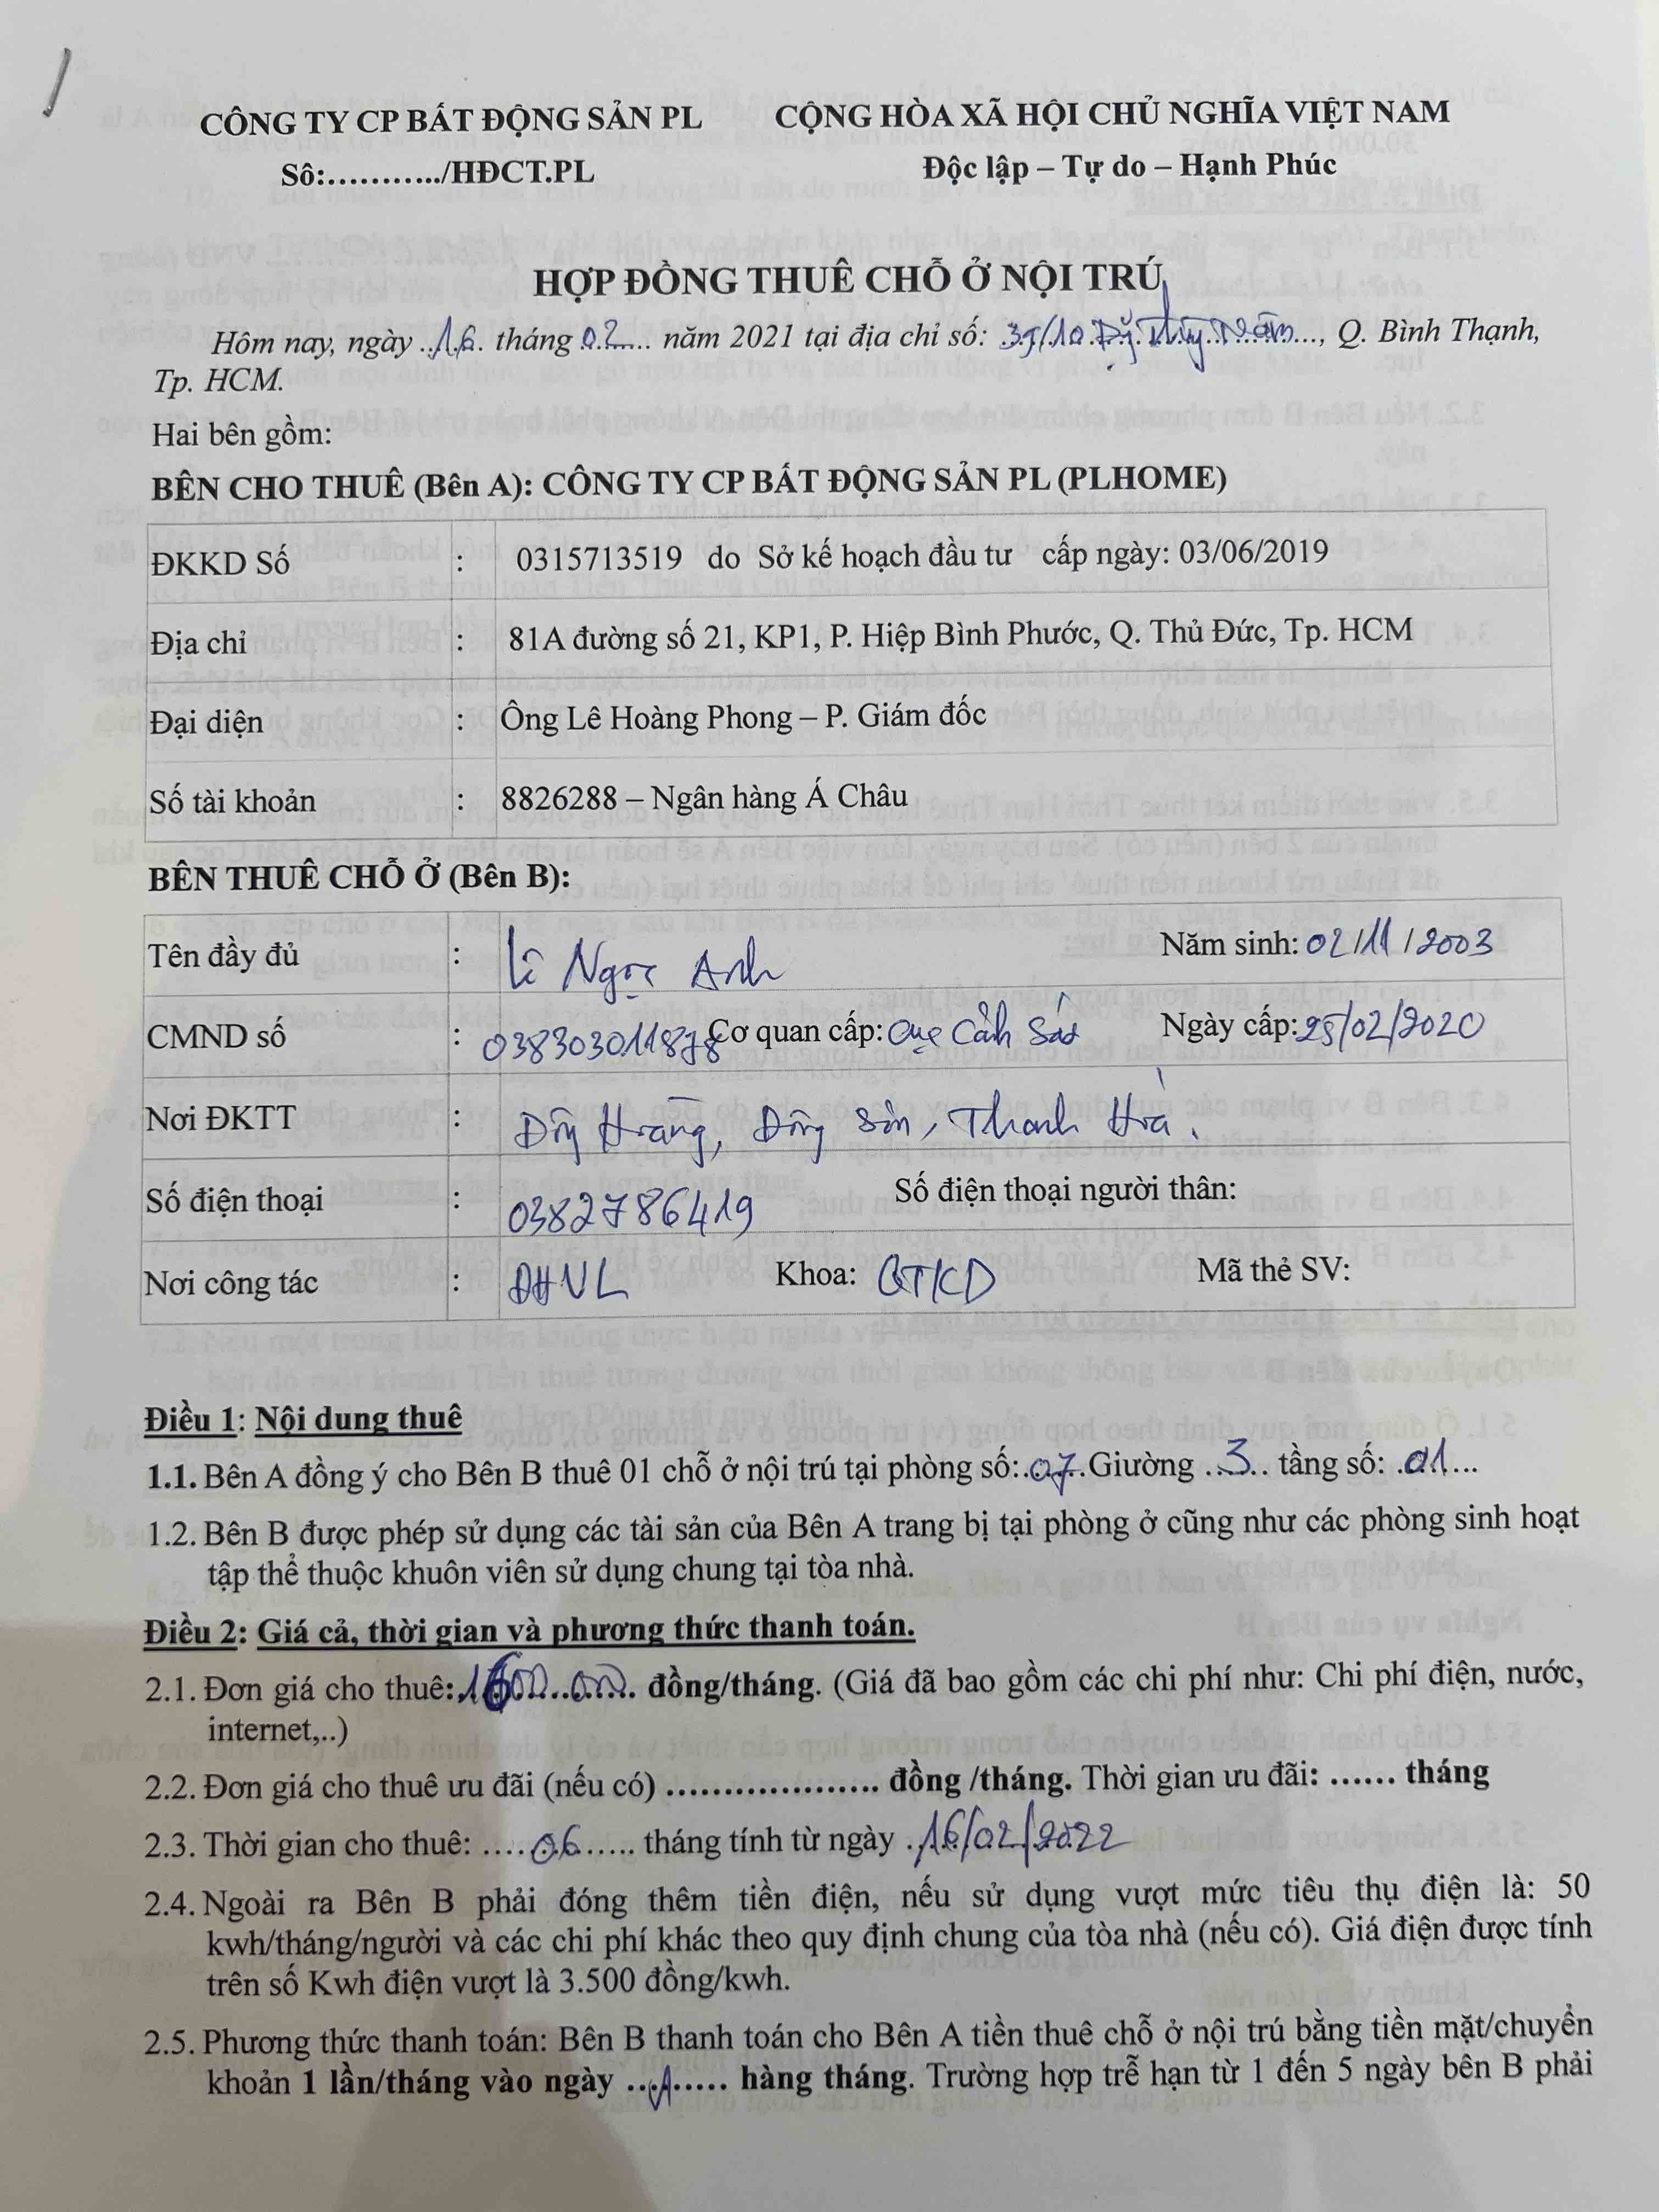 CÔNG TY CP BẤT ĐỘNG SẢN PL CỘNG HÒA XÃ HỘI CHỦ NGHĨA VIỆT NAM
Số:.........../HĐCT.PL Độc lập – Tự do – Hạnh Phúc
HỢP ĐỒNG THUÊ CHỖ Ở NỘI TRÚ
Hôm nay, ngày 16 tháng 02 năm 2021 tại địa chỉ số: 39/10 Thùy, Q. Bình Thạnh,
Tp. HCM.
Hai bên gồm:
BÊN CHO THUÊ (Bên A): CÔNG TY CP BẤT ĐỘNG SẢN PL (PLHOME)
ĐKKD Số : 0315713519 do Sở kế hoạch đầu tư cấp ngày: 03/06/2019
Địa chỉ : 81A đường số 21, KP1, P. Hiệp Bình Phước, Q. Thủ Đức, Tp. HCM
Đại diện : Ông Lê Hoàng Phong – P. Giám đốc
Số tài khoản : 8826288 – Ngân hàng Á Châu
BÊN THUÊ CHỖ Ở (Bên B):
Tên đầy đủ : Lê Ngọc Anh Năm sinh: 02/11/2003
CMND số : 038303011878 Cơ quan cấp: Cục Cảnh Sát Ngày cấp: 25/02/2020
Nơi ĐKTT : Đông Hoàng, Đông Sơn, Thanh Hóa.
Số điện thoại : 0382786419 Số điện thoại người thân:
Nơi công tác : ĐHVL Khoa: QTKD Mã thẻ SV:
Điều 1: Nội dung thuê
1.1. Bên A đồng ý cho Bên B thuê 01 chỗ ở nội trú tại phòng số: 07 Giường 3 tầng số: 01
1.2. Bên B được phép sử dụng các tài sản của Bên A trang bị tại phòng ở cũng như các phòng sinh hoạt
tập thể thuộc khuôn viên sử dụng chung tại tòa nhà.
Điều 2: Giá cả, thời gian và phương thức thanh toán.
2.1. Đơn giá cho thuê: 1600.000 đồng/tháng. (Giá đã bao gồm các chi phí như: Chi phí điện, nước,
internet,..)
2.2. Đơn giá cho thuê ưu đãi (nếu có) .................... đồng /tháng. Thời gian ưu đãi: ...... tháng
2.3. Thời gian cho thuê: 06 tháng tính từ ngày 16/02/2022
2.4. Ngoài ra Bên B phải đóng thêm tiền điện, nếu sử dụng vượt mức tiêu thụ điện là: 50
kwh/tháng/người và các chi phí khác theo quy định chung của tòa nhà (nếu có). Giá điện được tính
trên số Kwh điện vượt là 3.500 đồng/kwh.
2.5. Phương thức thanh toán: Bên B thanh toán cho Bên A tiền thuê chỗ ở nội trú bằng tiền mặt/chuyển
khoản 1 lần/tháng vào ngày 1 hàng tháng. Trường hợp trễ hạn từ 1 đến 5 ngày bên B phải